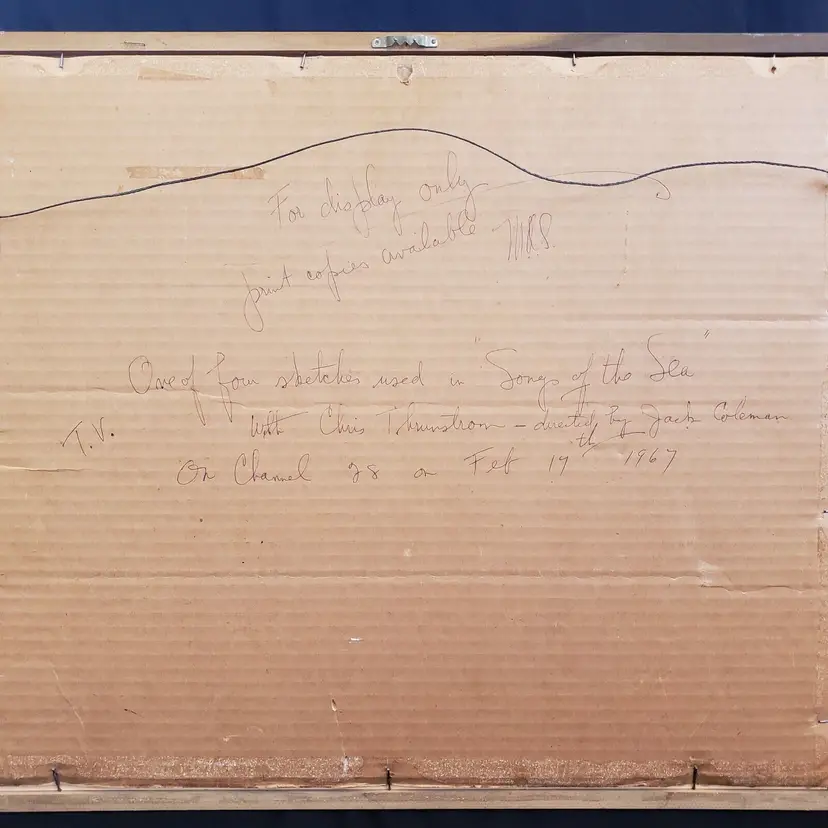 For display only
print copies available M.R.S.
One of four sketches used in "Songs of the Sea"
T.V. with Chris Thrunstrom - directed by Jack Coleman
On Channel 28 on Feb 19th 1967